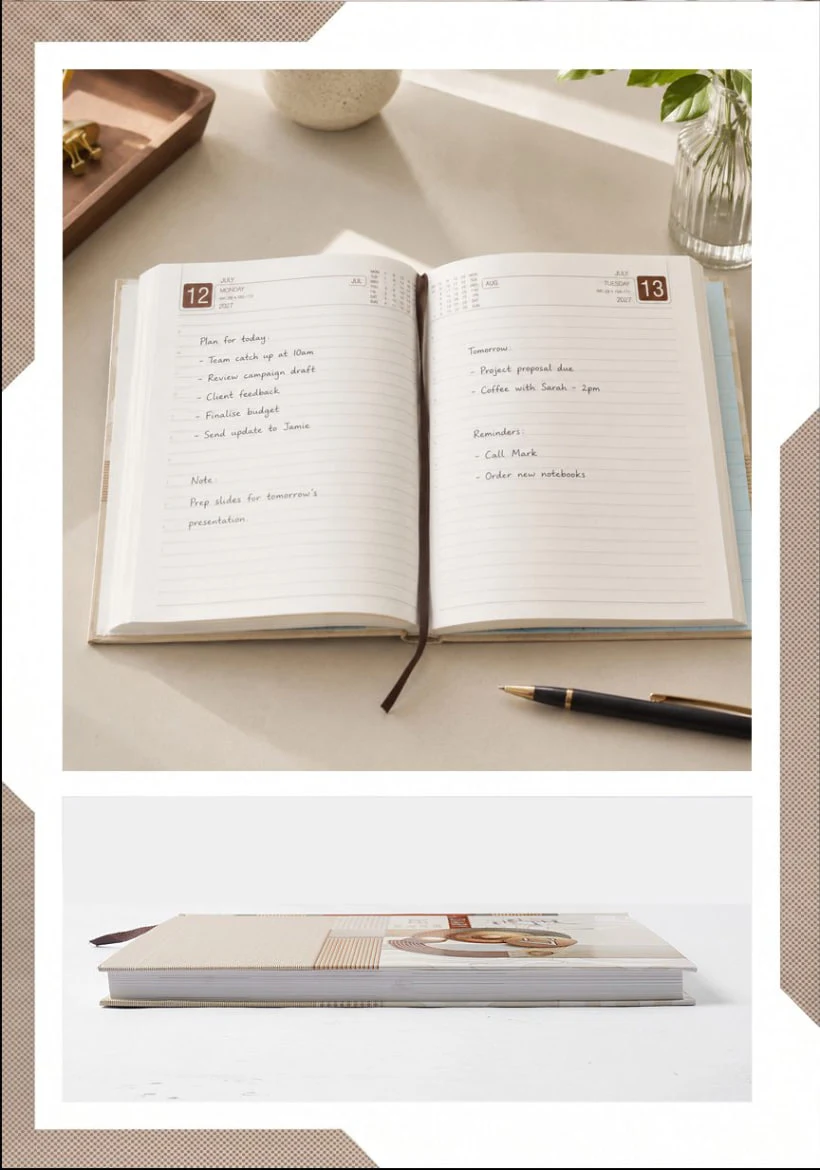 12
JULY
MONDAY
2027
JUL
Plan for today:
- Team catch up at 10am
- Review campaign draft
- Client feedback
- Finalise budget
- Send update to Jamie
Note:
Prep slides for tomorrow's
presentation.
AUG
JULY
TUESDAY
2027
13
Tomorrow:
- Project proposal due
- Coffee with Sarah - 2pm
Reminders:
- Call Mark
- Order new notebooks